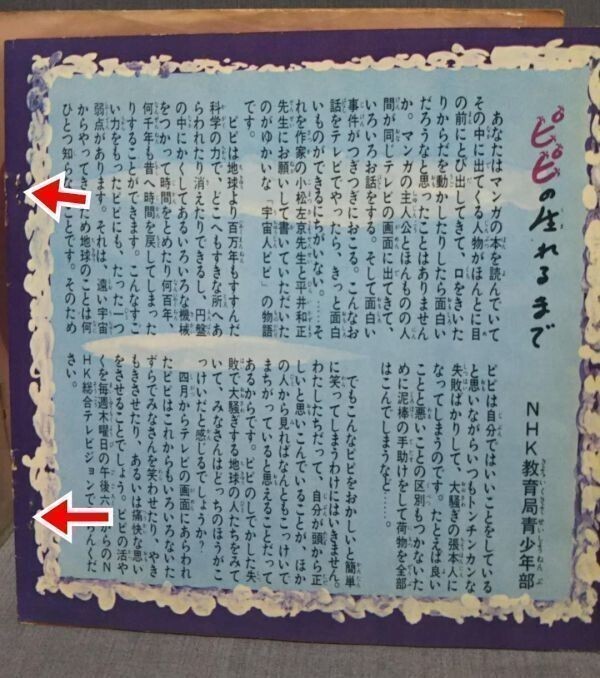 ピピの生れるまで
NHK教育局青少年部
あなたはマンガの本を読んでいて
その中に出てくる人物がほんとに目
の前にとび出してきて、口をきいた
りからだを動かしたりしたら面白い
だろうなと思ったことはありません
か。マンガの主人公とほんものの人
間が同じテレビの画面に出てきて、
いろいろお話をする。そして面白い
事件がつぎつぎにおこる。こんなお
話をテレビでやったら、きっと面白
いものができるにちがいない。……そ
れを作家の小松左京先生と平井和正
先生にお願いして書いていただいた
のがゆかいな「宇宙人ピピ」の物語
です。
ピピは地球より百万年もすすんだ
科学の力で、どこへもすきな所へあ
らわれたり消えたりできるし、円盤
の中にかくしてあるいろいろな機械
をつかって時間をとめたり何百年、
何千年も昔へ時間を戻してしまった
りすることができます。こんなすご
い力をもったピピにも、たった一つ
弱点があります。それは、遠い宇宙
からやってきたため地球のことは何
ひとつ知らないことです。そのため
ピピは自分ではいいことをしている
と思いながらいつもトンチンカンな
失敗ばかりして、大騒ぎの張本人に
なってしまうのです。たとえば良い
ことと悪いことの区別もつかないた
めに泥棒の手助けをして荷物を全部
はこんでしまうなど……。
でもこんなピピをおかしいと簡単
に笑ってしまうわけにはいきません。
わたしたちだって、自分が頭から正
しいと思いこんでいることが、ほか
の人から見ればなんともこっけいで
まちがっていると思えることだって
あるからです。ピピのしでかした失
敗で大騒ぎする地球の人たちをみて
いて、みなさんはどっちのほうがこ
っけいだと感じるでしょうか？
四月からテレビの画面にあらわれ
たピピはこれからもいろいろないた
ずらでみなさんを笑わせたり、やき
もきさせたり、あるいは痛快な思い
をさせることでしょう。ピピの活や
くを毎週木曜日の午後六
からのN
HK総合テレビジョンで
らんくだ
さい。